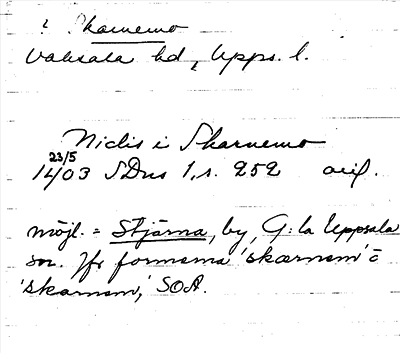 ? Skarnemo
Vaksala hd, Upps. l.
Niclis i Skarnemo
23/5
1403 SDns 1, s. 252 orig.
möjl. = Stjärna, by, G:la Uppsala
sn. Jfr formerna 'skærnem' o
'skarnem,' SOA.